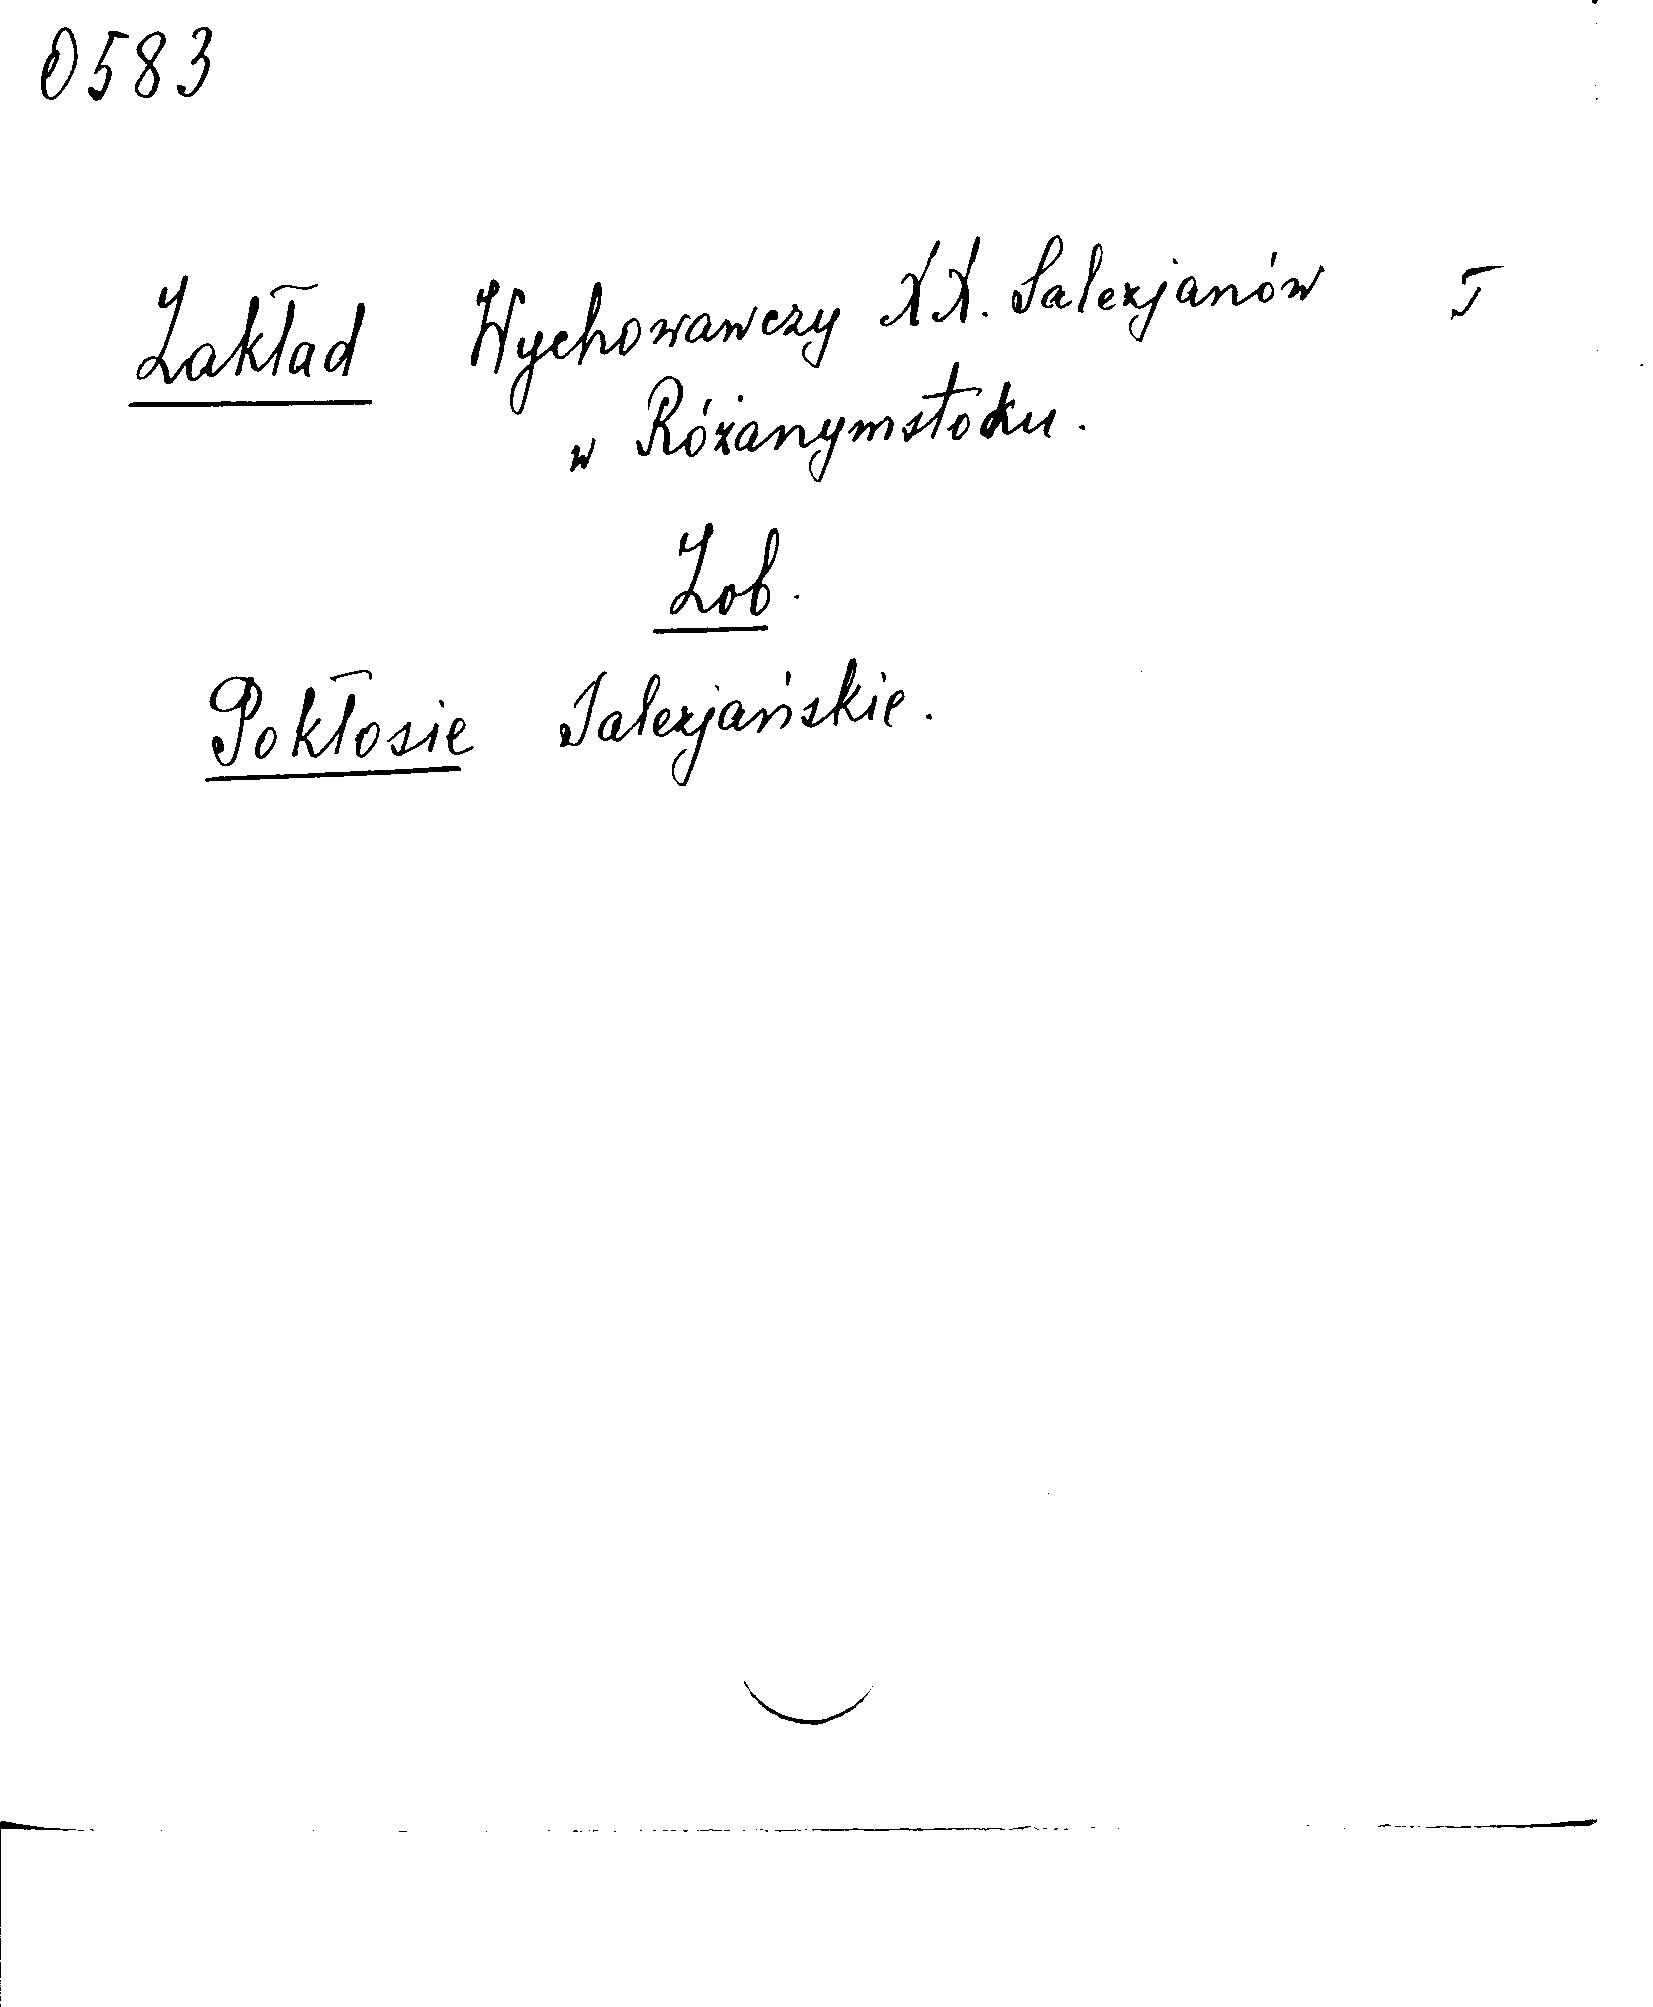 0583
Zakład Wychowawczy XX. Salezjanów T
w Różanymstoku.
Zob.
Pokłosie Salezjańskie.